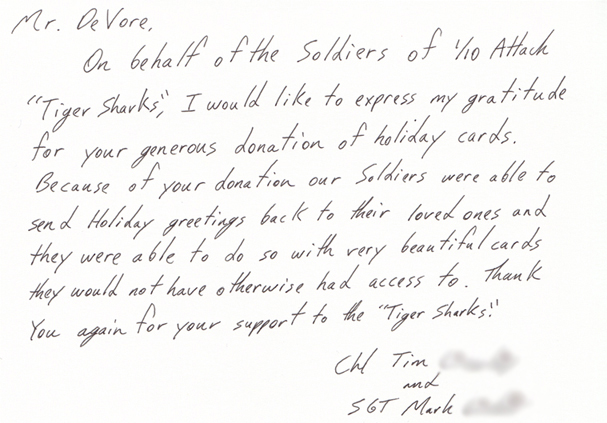 Mr. DeVore,
On behalf of the Soldiers of 1/10 Attack
"Tiger Sharks", I would like to express my gratitude
for your generous donation of holiday cards.
Because of your donation our Soldiers were able to
send Holiday greetings back to their loved ones and
they were able to do so with very beautiful cards
they would not have otherwise had access to. Thank
You again for your support to the "Tiger Sharks."
Ch1 Tim
and
SGT Mark